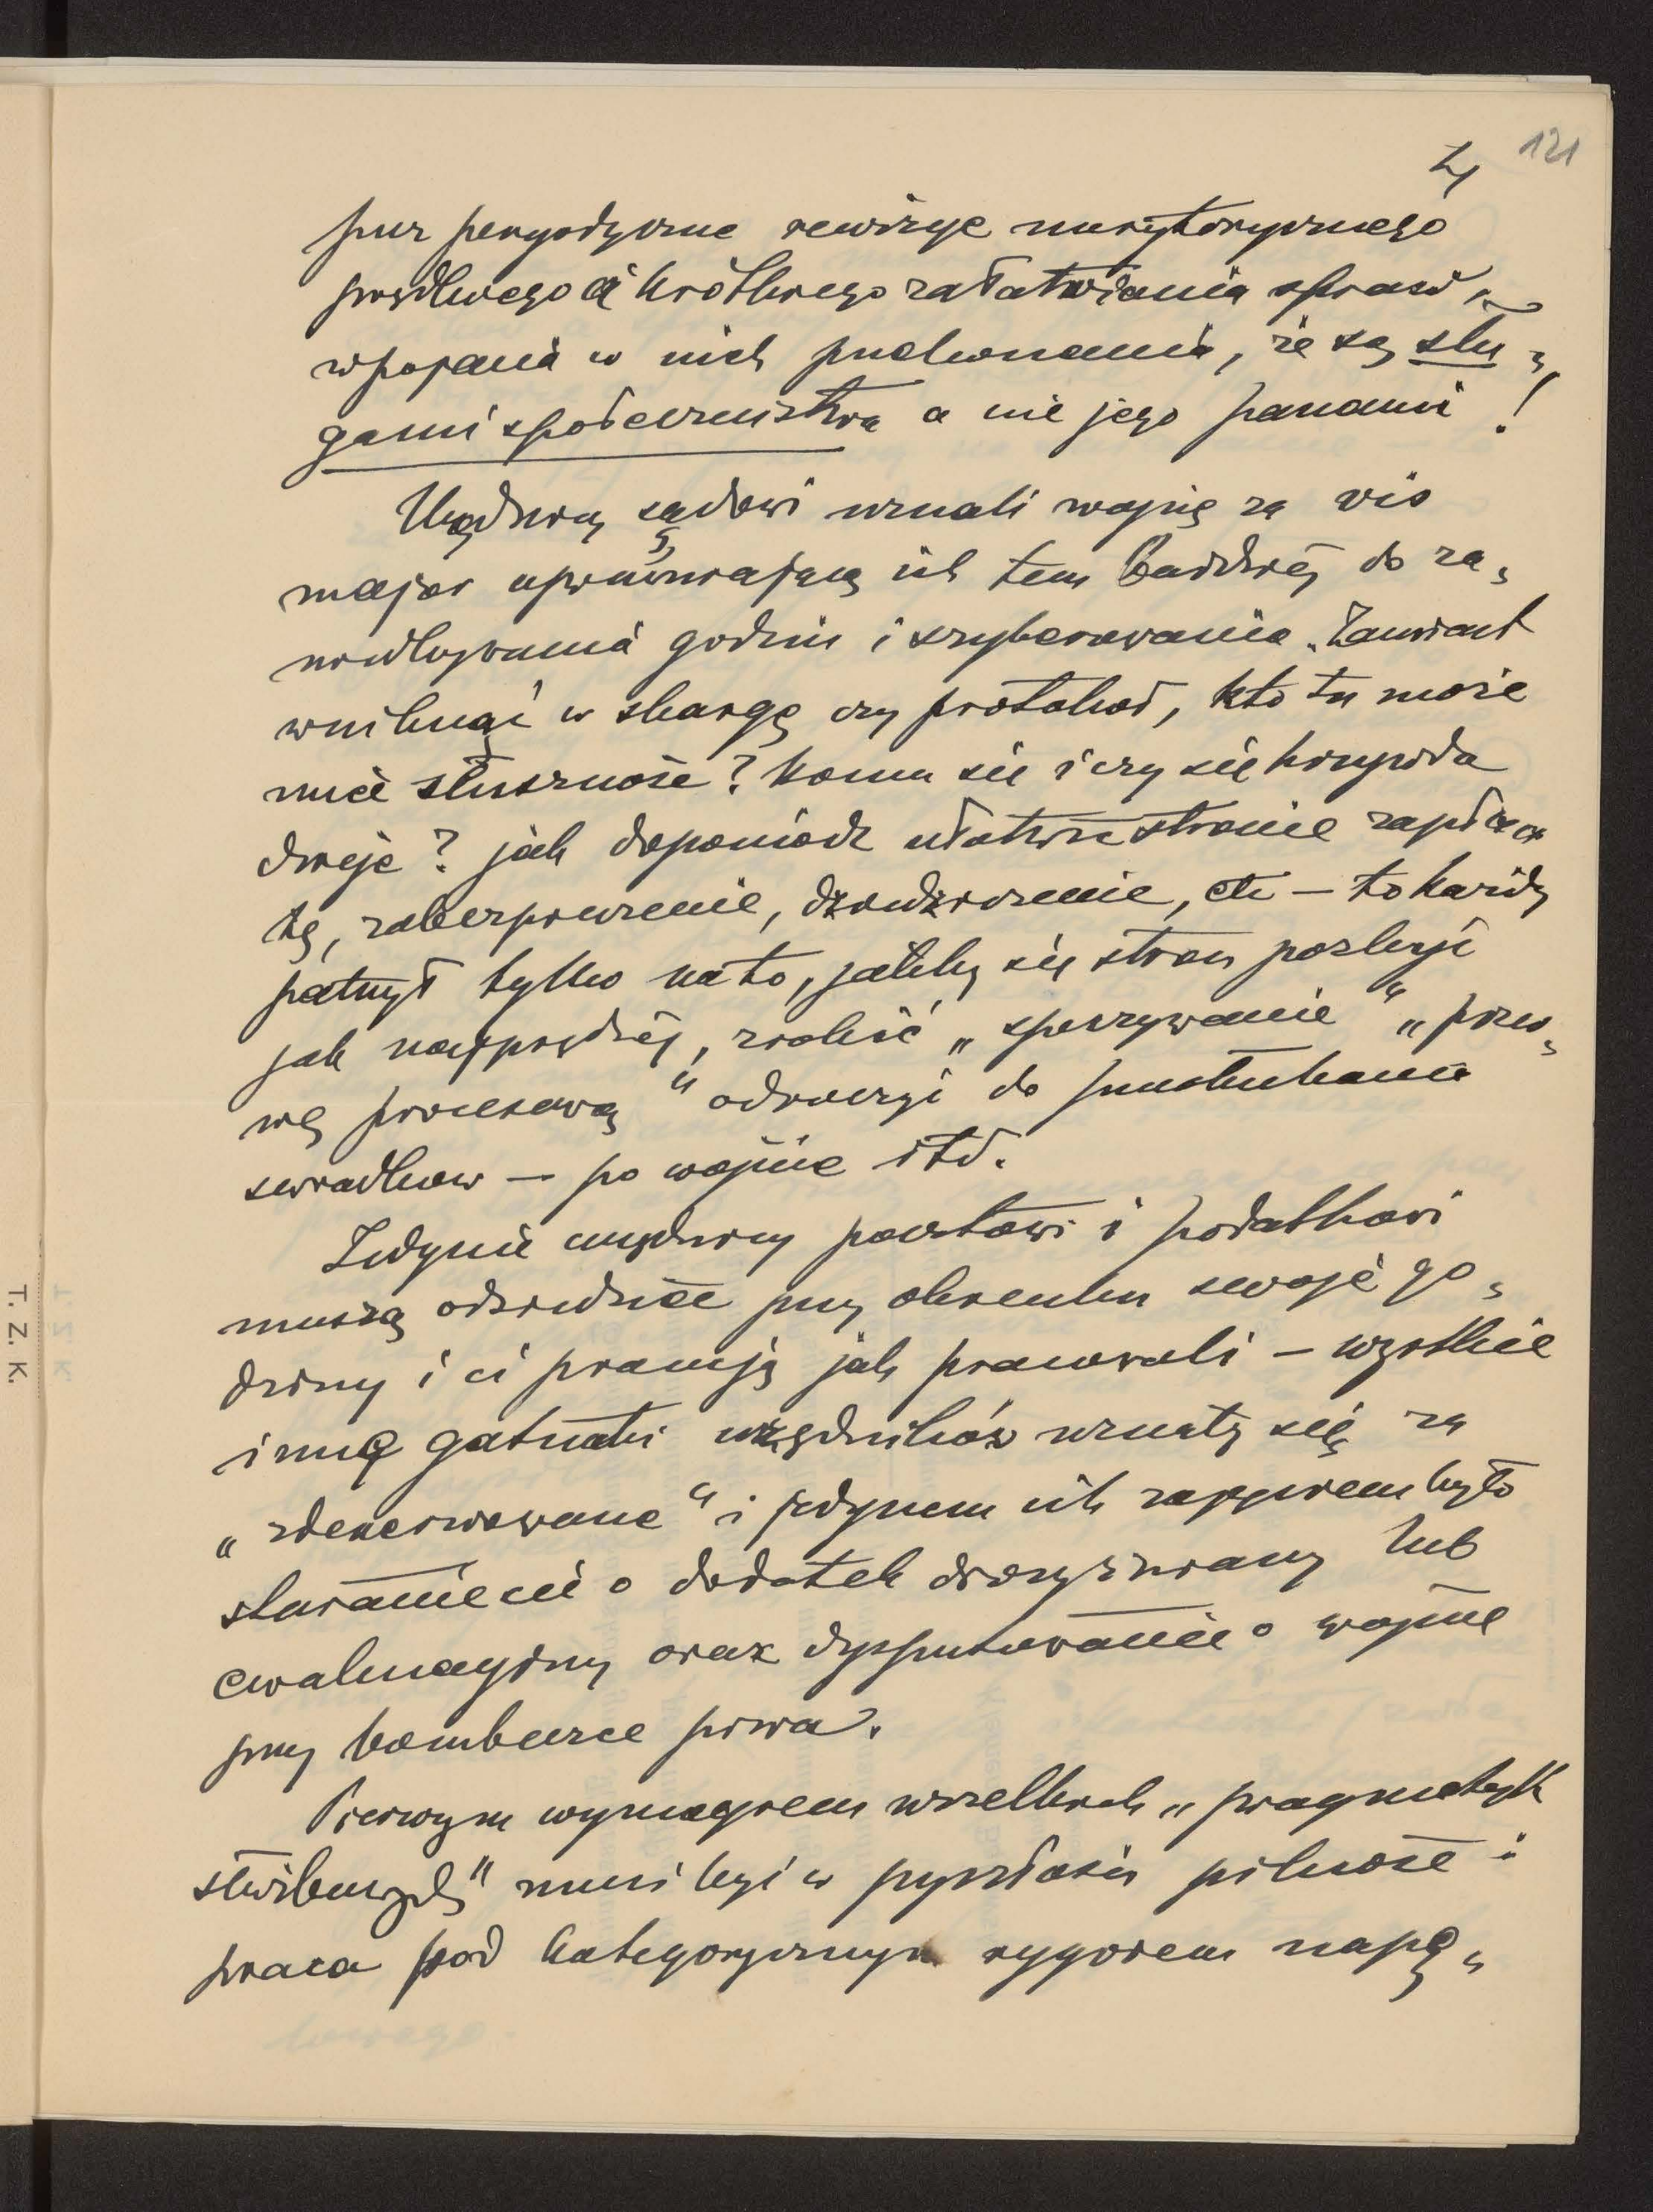 4 121
przez peryodyczne rewizye merytorycznego
prędkiego a krótkiego załatwiania spraw,
wpajania w nich przekonania, że są słu-
gami społeczeństwa a nie jego panami!
Urzędnicy sądowi uznali wojnę za vis
major uprawniającą ich tem bardziej do za-
niedbywania godzin i szyberowania. Zamiast
wniknąć w skargę czy protokół, kto tu może
mieć słuszność? komu się i czy się krzywda
dzieje? jak dopomódz ułatwić stronie zapła-
tę, zabezpieczenie, etc – to każdy
patrzył tylko na to, jakby się stron pozbyć
jak najprędzej, zrobić „spoczywanie" „przer-
wę procesową" odroczyć do przesłuchania
świadków – po wojnie itd.
Jedynie urzędnicy pocztowi i podatkowi
muszą odsiedzieć przy okienku swoje go-
dziny i ci pracują jak pracowali – wszystkie
inne gatunki urzędników uznały się za
„zdenerwowane" i jedynem ich zajęciem było
staranie się o dodatek drożyźniany lub
ewakuacyjny oraz dysputowanie o wojnie
przy bombeczce piwa.
Pierwszym wymogiem wszelkich „pragmatyk
służbowych" musi być w przyszłości pilność i
praca pod kategorycznym rygorem napę-
T. Z. K.